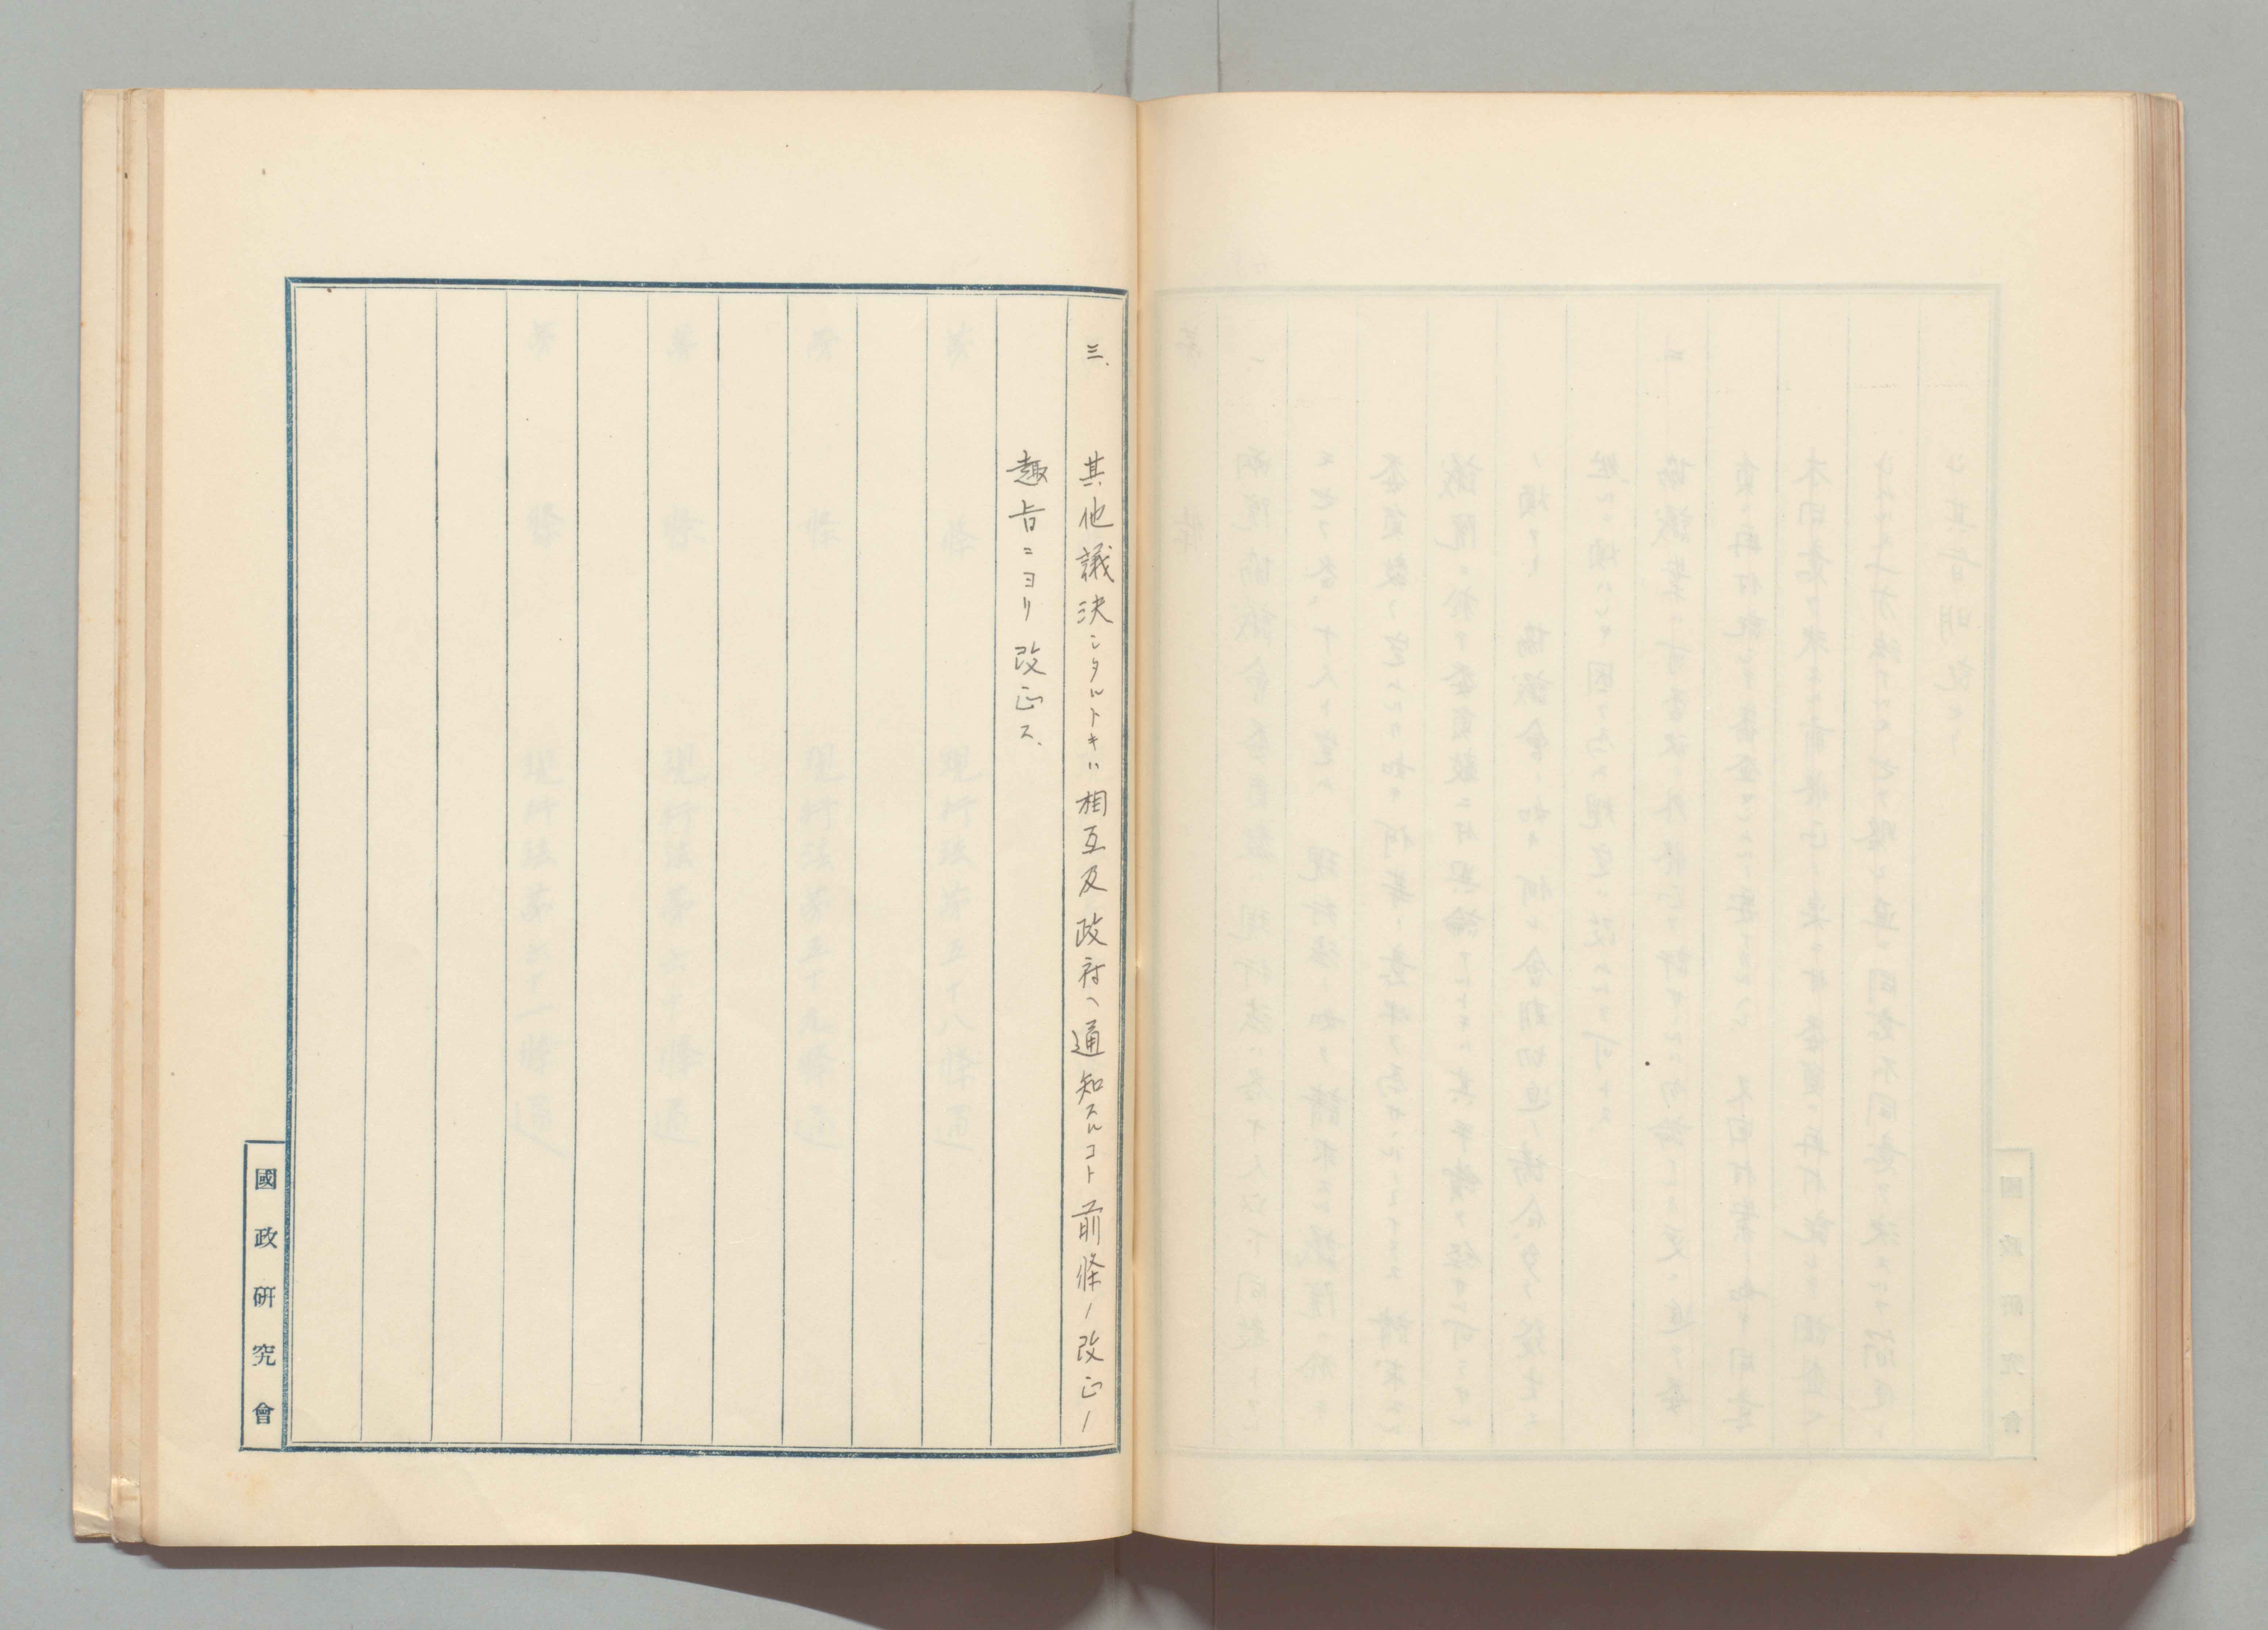 三、其他議決シタルトキハ相互及政府ヘ通知スルコト前條ノ改正ノ
趣旨ニヨリ改正ス、
國政研究會